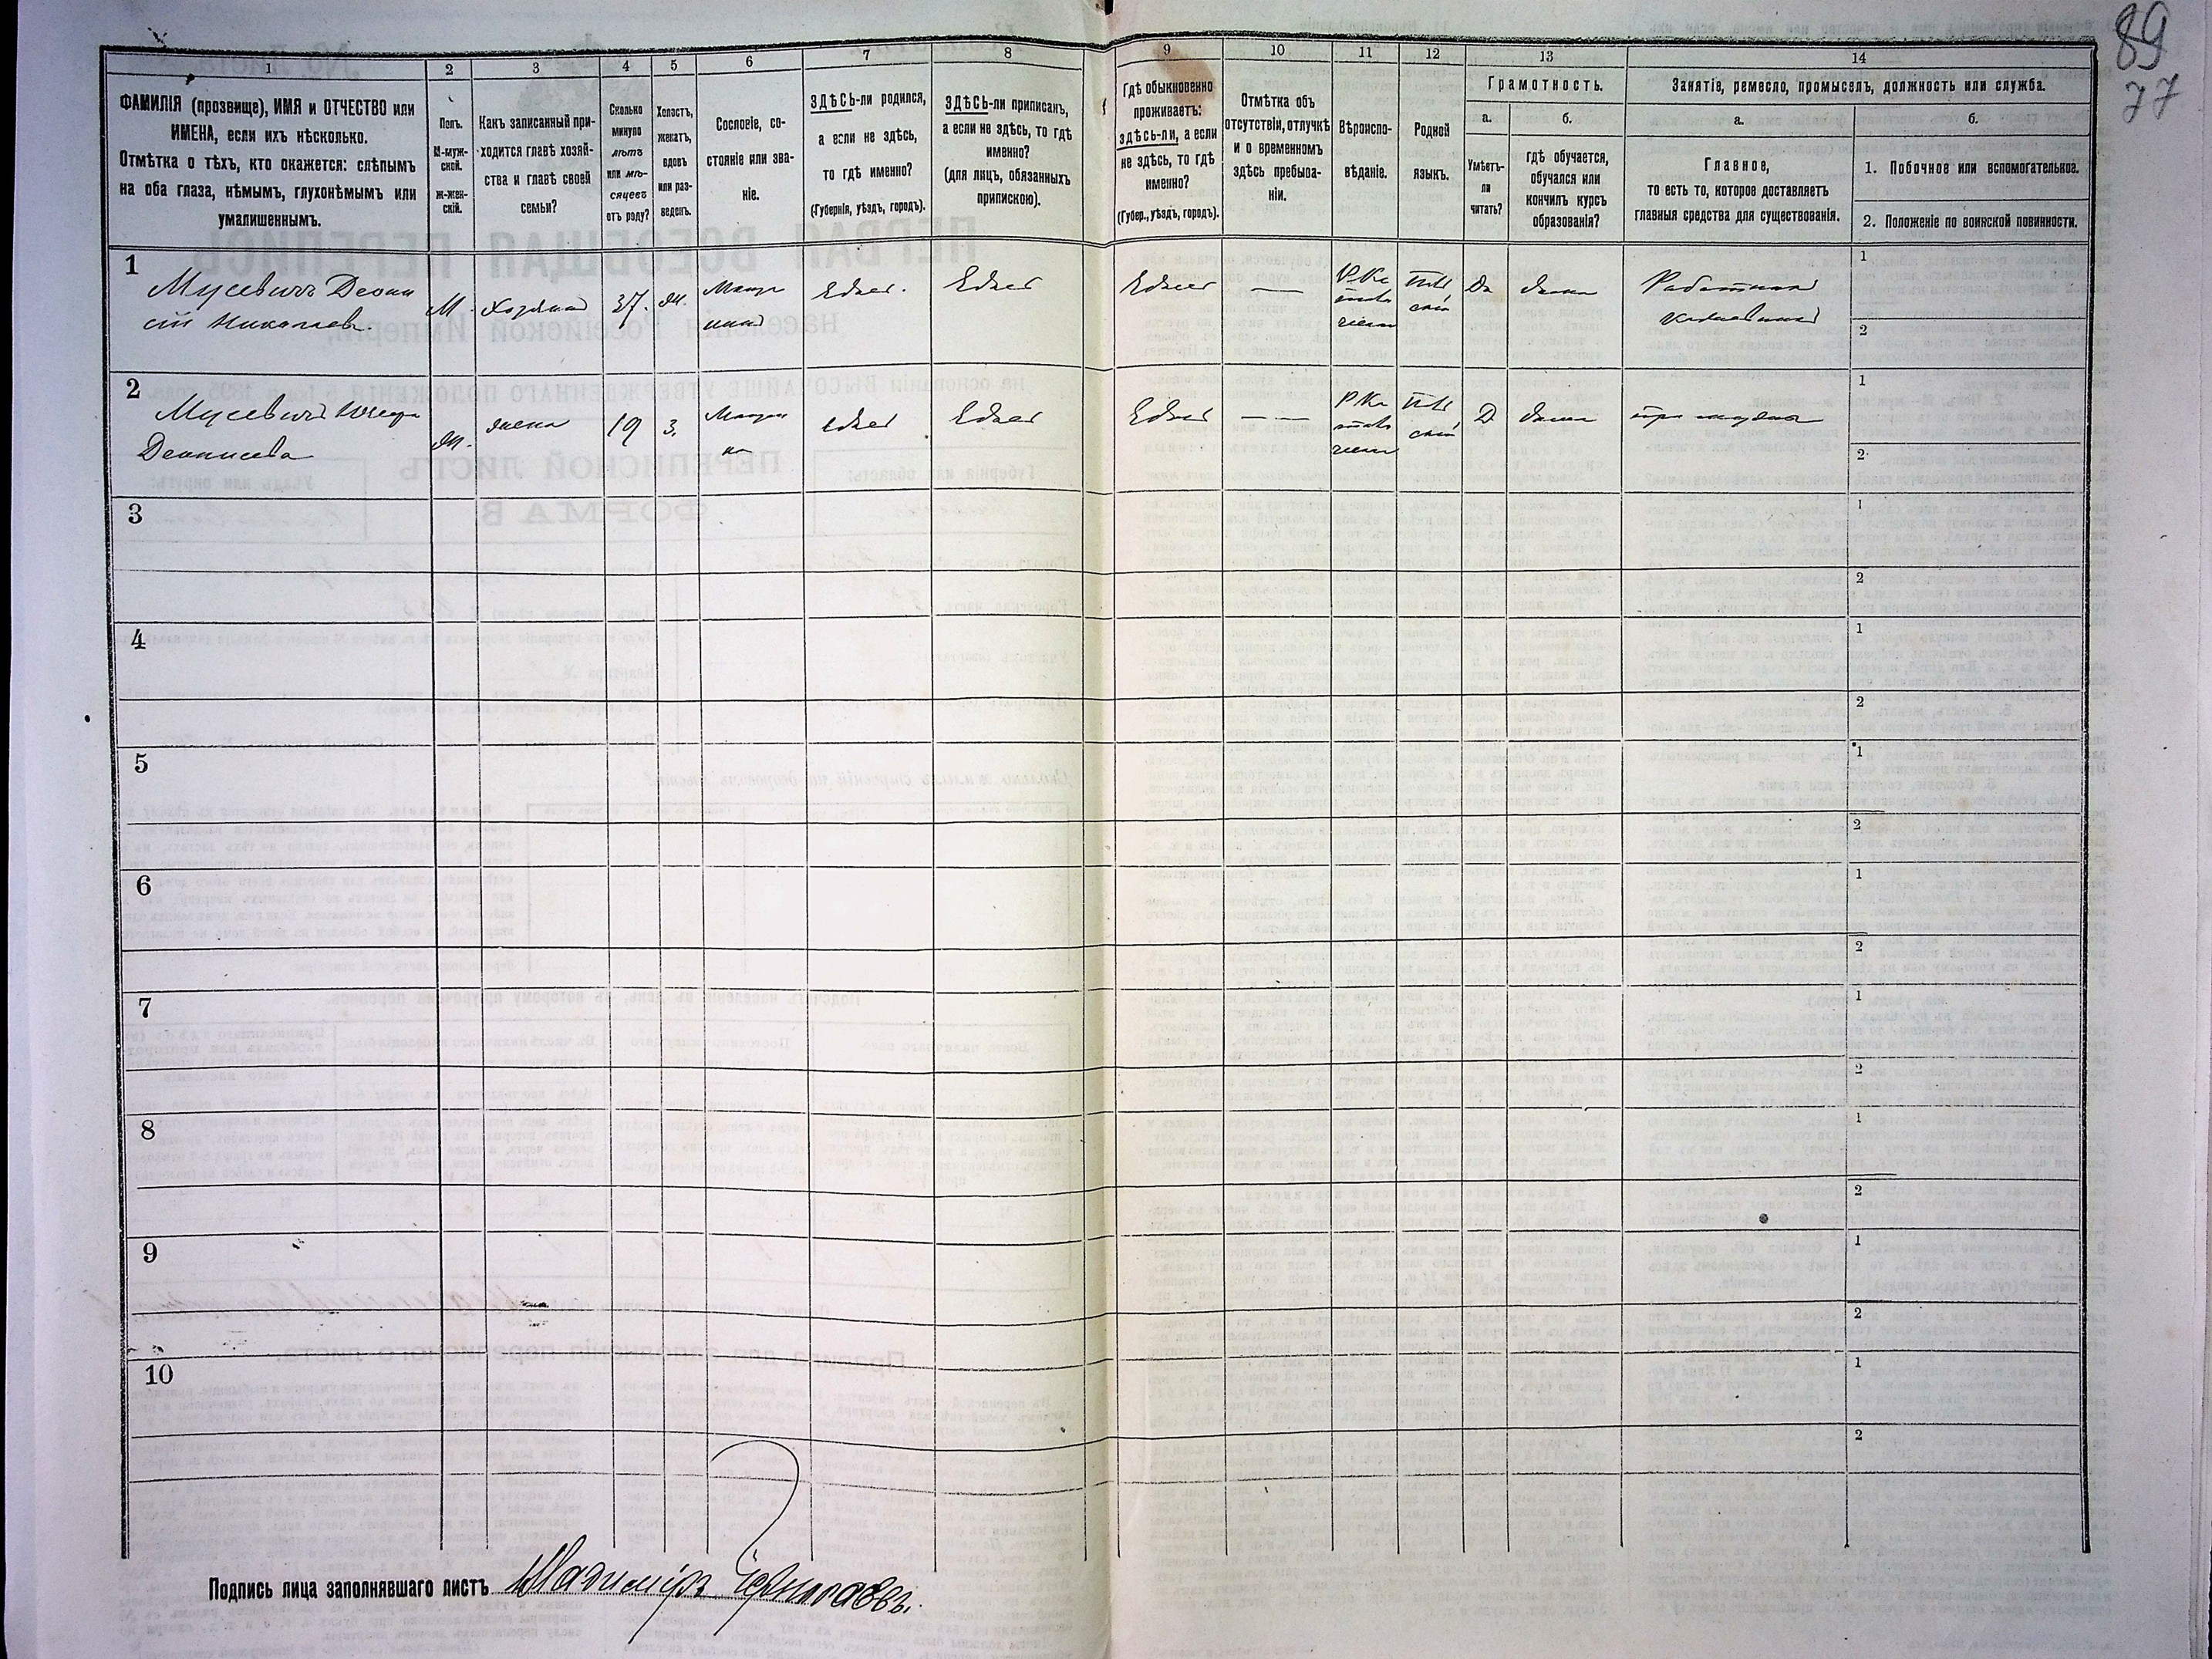 89
77
1
2
3
4
5
6
7
8
9
10
11
12
13
14
ФАМИЛІЯ (прозвище), ИМЯ и ОТЧЕСТВО или
ИМЕНА, если ихъ нѣсколько.
Отмѣтка о тѣхъ, кто окажется: слѣпымъ
на оба глаза, нѣмымъ, глухонѣмымъ или
умалишеннымъ.
Полъ.
М-муж-
ской.
Ж-жен-
скій.
Какъ записанный при-
ходится главѣ хозяй-
ства и главѣ своей
семьи?
Сколько
минуло
лѣтъ
или мѣ-
сяцевъ
отъ роду?
Холостъ,
женатъ,
вдовъ
или раз-
веденъ.
Сословіе, со-
стояніе или зва-
ніе.
ЗДѢСЬ-ли родился,
а если не здѣсь,
то гдѣ именно?
(Губернія, уѣздъ, городъ).
ЗДѢСЬ-ли приписанъ,
а если не здѣсь, то гдѣ
именно?
(для лицъ, обязанныхъ
припискою).
Гдѣ обыкновенно
проживаетъ:
здѣсь-ли, а если
не здѣсь, то гдѣ
именно?
(Губер., уѣздъ, городъ).
Отмѣтка объ
отсутствіи, отлучкѣ
и о временномъ
здѣсь пребыва-
ніи.
Вѣроиспо-
вѣданіе.
Родной
языкъ.
Грамотность.
а.
Умѣетъ-
ли
читать?
б.
гдѣ обучается,
обучался или
кончилъ курсъ
образованія?
Занятіе, ремесло, промыселъ, должность или служба.
а.
Главное,
то есть то, которое доставляетъ
главныя средства для существованія.
б.
1. Побочное или вспомогательное.
2. Положеніе по воинской повинности.
1
Мусевичъ
Николаев.
М
Хозяинъ
37.
Здѣсь.
Здѣсь
Здѣсь
—
Р. Ка
Да
дома
Работникъ
1
2
2
Мусевичъ
Деонисева
жена
19
З.
Здѣсь
Здѣсь
Здѣсь
— —
Р. Ка
Д
дома
при мужѣ
1
2
3
1
2
4
1
2
5
1
2
6
1
2
7
1
2
8
1
2
9
1
2
10
1
2
Подпись лица заполнявшаго листъ Владиміръ